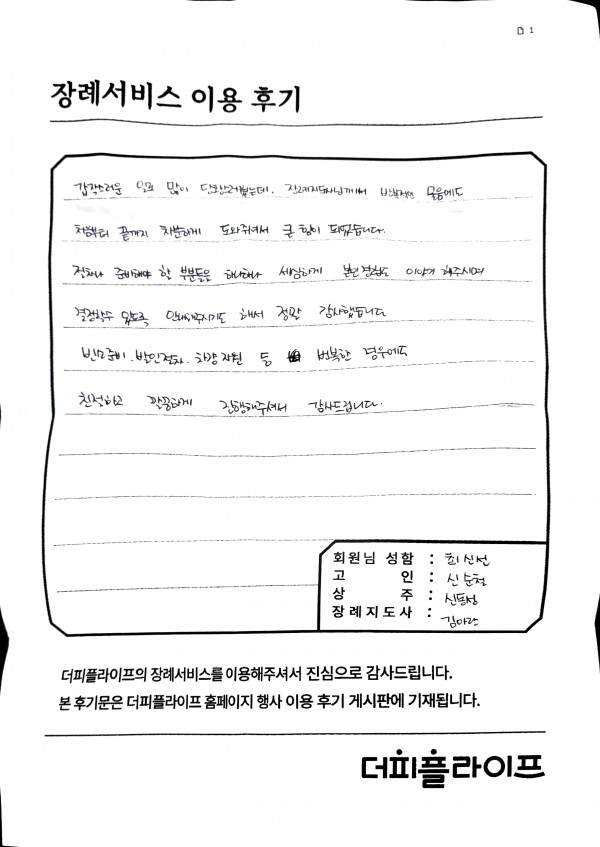 D 1
장례서비스 이용 후기
갑작스러운 일로 많이 당황스러웠는데, 장례지도사님께서 반복적인 물음에도
처음부터 끝까지 차분하게 도와주셔서 큰 힘이 되었습니다.
절차나 준비해야 할 부분들을 하나하나 세심하게 이야기 해주시며
결정할수 있도록 안내해주시기도 해서 정말 감사했습니다
발인절차, 차량지원 등 번복한 경우에도
친절하고 깔끔하게 진행해주셔서 감사드립니다.
회원님 성함 : 최신선
고 인 : 신순철
상 주 : 신동성
장례지도사 : 김아란
더피플라이프의 장례서비스를 이용해주셔서 진심으로 감사드립니다.
본 후기문은 더피플라이프 홈페이지 행사 이용 후기 게시판에 기재됩니다.
더피플라이프